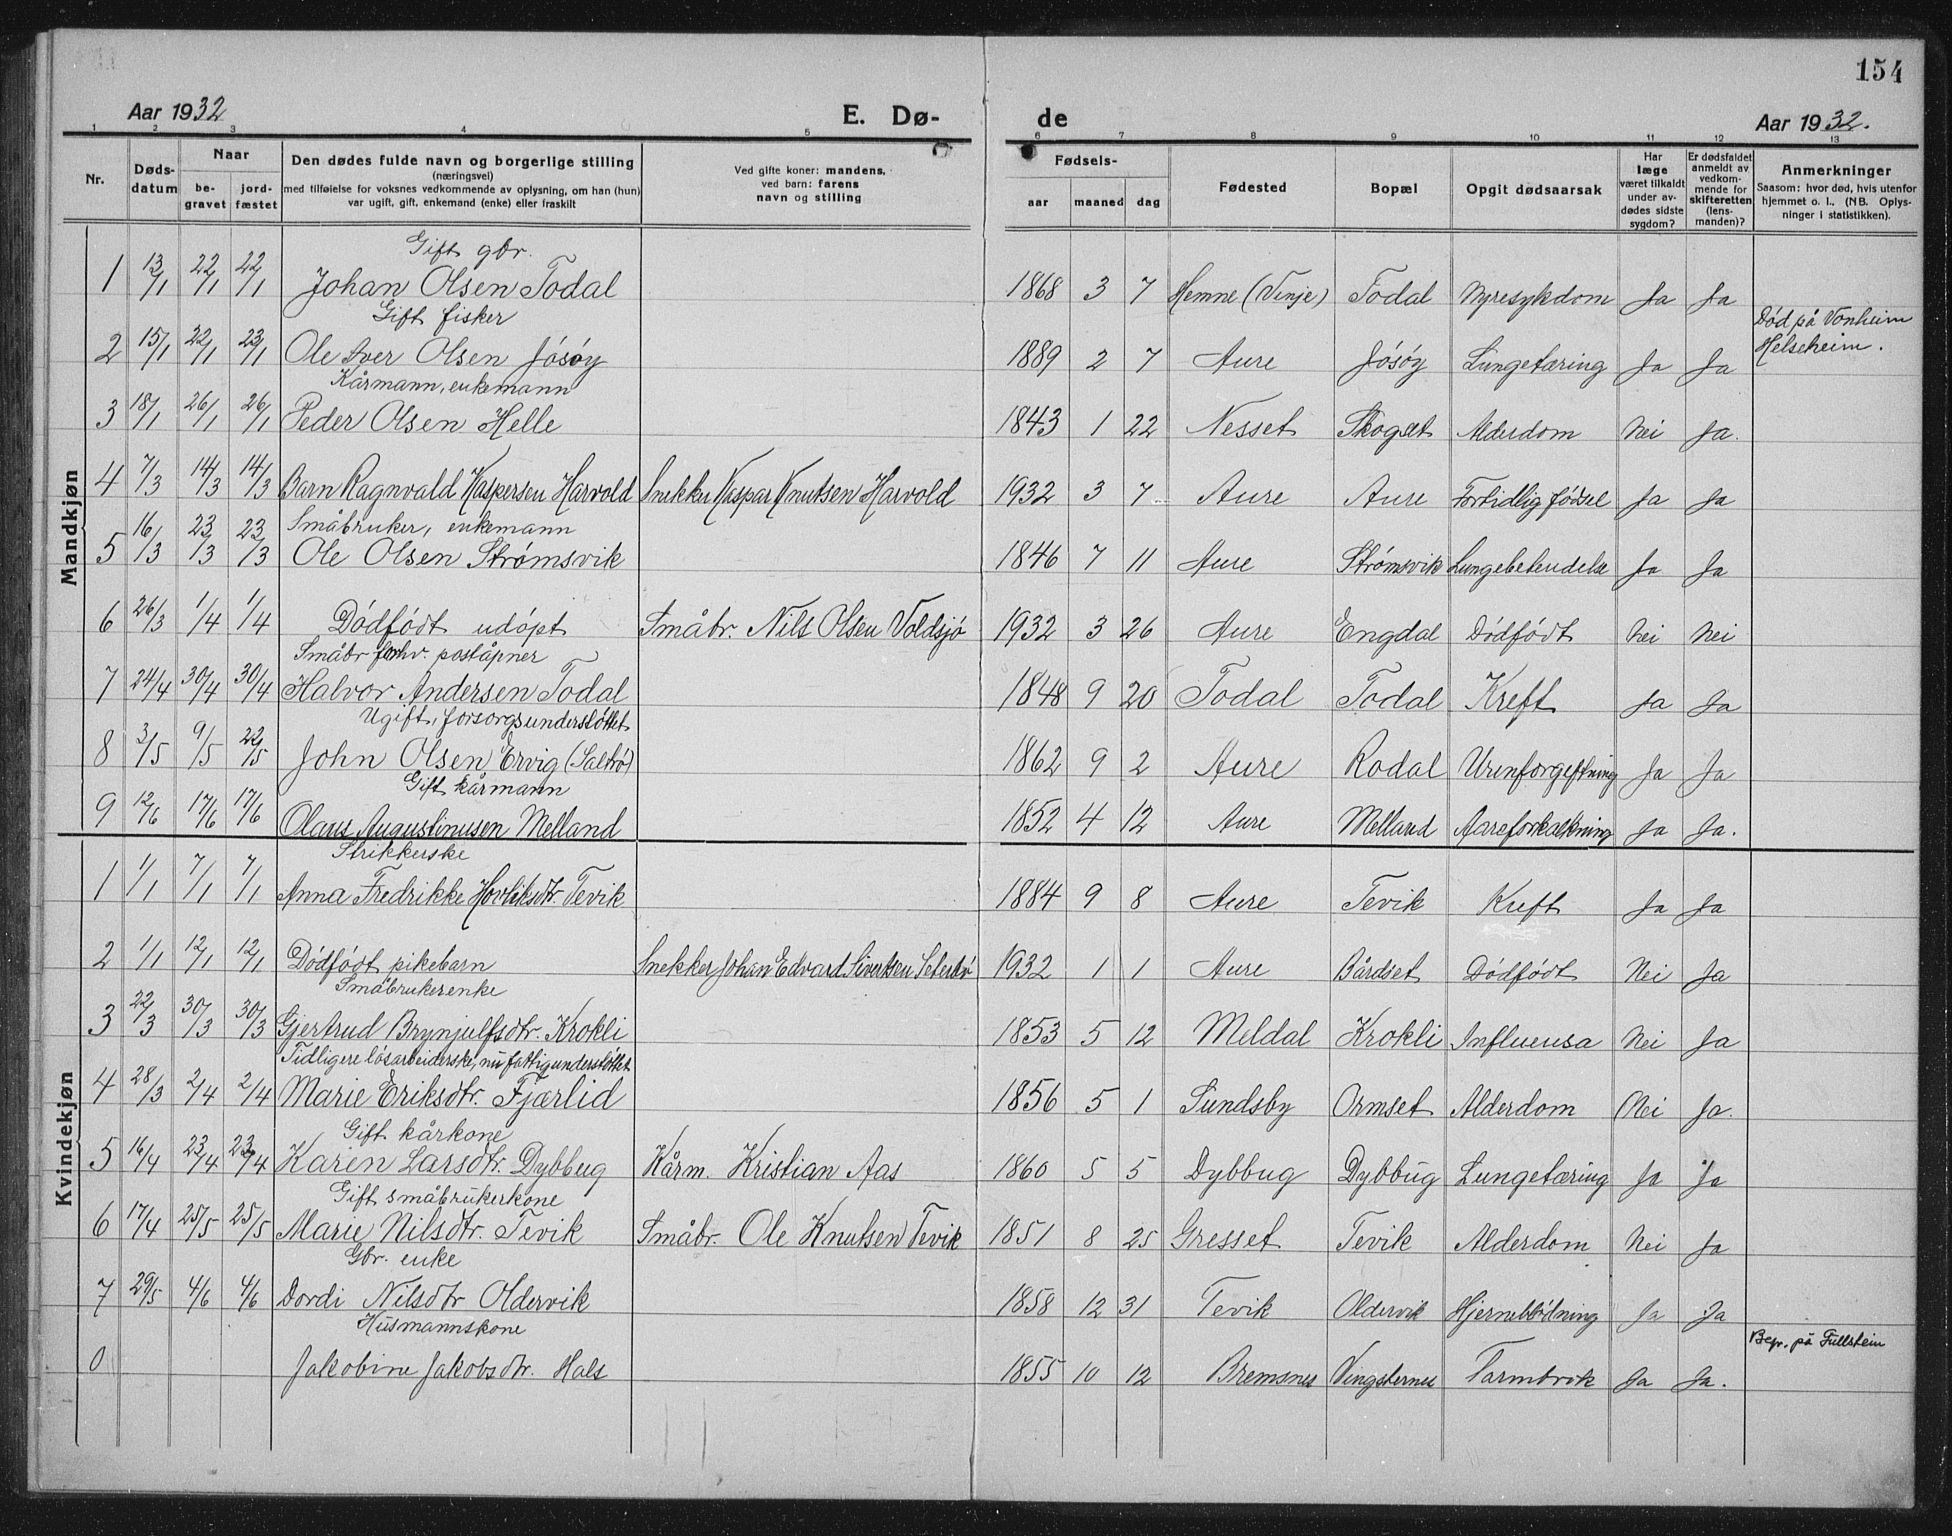 154
Aar 1932 E. Dø- de Aar 1932.
1 2 3 4 5 6 7 8 9 10 11 12 13
Nr. Døds-datum Naar be-gravet jord-fæstet Den dødes fulde navn og borgerlige stilling (næringsvei) med tilføielse for voksnes vedkommende av oplysning, om han (hun) var ugift, gift, enkemand (enke) eller fraskilt Ved gifte koner: mandens, ved barn: farens navn og stilling Fødsels- aar maaned dag Fødested Bopæl Opgit dødsaarsak Har læge været tilkaldt under av-dødes sidste sygdom? Er dødsfaldet anmeldt av vedkom-mende for skifteretten (lens-manden)? Anmerkninger Saasom: hvor død, hvis utenfor hjemmet o. l., (NB. Oplys-ninger i statistikken).
Mandkjøn
Gift gbr.
1 13/1 22/1 22/1 Johan Olsen Todal 1868 3 7 Hemne (Vinje) Todal Nyresykdom Ja Ja
Gift fisker
2 15/1 22/1 23/1 Ole Iver Olsen Jøsøy 1889 2 7 Aure Jøsøy Lungetæring Ja Ja Død på Vonheim Helseheim.
Kårmann, enkemann
3 18/1 26/1 26/1 Peder Olsen Helle 1843 1 22 Nesset Skogset Alderdom Nei Ja.
4 7/3 14/3 14/3 Barn Ragnvald Kaspersen Harvold Snekker Kaspar Knutsen Harvold 1932 3 7 Aure Aure Fortidlig fødsel Ja Ja
Småbruker, enkemann
5 16/3 23/3 23/3 Ole Olsen Strømsvik 1846 7 11 Aure Strømsvik Lungebetendelse Ja Ja
6 26/3 1/4 1/4 Dødfødt udøpt Småbr. Nils Olsen Voldsjø 1932 3 26 Aure Engdal Dødfødt Nei Nei
Småbr forhv. poståpner
7 24/4 30/4 30/4 Halvor Andersen Todal 1848 9 20 Todal Todal Kreft Ja Ja
Ugift, forsorgsunderstøttet
8 3/5 9/5 22/5 John Olsen Ervig (Saltrø) 1862 9 2 Aure Rodal Urinforgiftning Ja Ja
Gift kårmann
9 12/6 17/6 17/6 Olaus Augustinusen Melland 1852 4 12 Aure Melland Aareforkalkning Ja Ja.
Kvindekjøn
Strikkerske
1 1/1 7/1 7/1 Anna Fredrikke Hovliksdtr. Tevik 1884 9 8 Aure Tevik Kreft Ja Ja
2 1/1 12/1 12/1 Dødfødt pikebarn Snekker Johan Edvard Sivertsen Seterbø 1932 1 1 Aure Bårdset Dødfødt Nei Ja
Småbrukerenke
3 22/3 30/3 30/3 Gjertrud Brynjulfsdtr. Krokli 1853 5 12 Meldal Krokli Influensa Nei Ja
Tidligere løsarbeiderske, nu fattigunderstøttet
4 28/3 2/4 2/4 Marie Eriksdtr. Fjærlid 1856 5 1 Sundsby Ormset Alderdom Nei Ja.
Gift kårkone
5 16/4 23/4 23/4 Karen Larsdtr. Dybbug Kårm. Kristian Aas 1860 5 5 Dybbug Dybbug Lungetæring Ja Ja
Gift småbrukerkone
6 17/4 25/5 25/5 Marie Nilsdtr. Tevik Småbr. Ole Knutsen Tevik 1851 8 25 Gresset Tevik Alderdom Nei Ja
Gbr. enke
7 29/5 4/6 4/6 Dordi Nilsdtr Oldervik 1858 12 31 Tevik Oldervik Hjerneblødning Ja Ja
Husmannskone
0 Jakobine Jakobsdtr. Hals 1855 10 12 Bremsnes Vingsternes Tarmbrok Ja Ja. Begr. på Gullstein